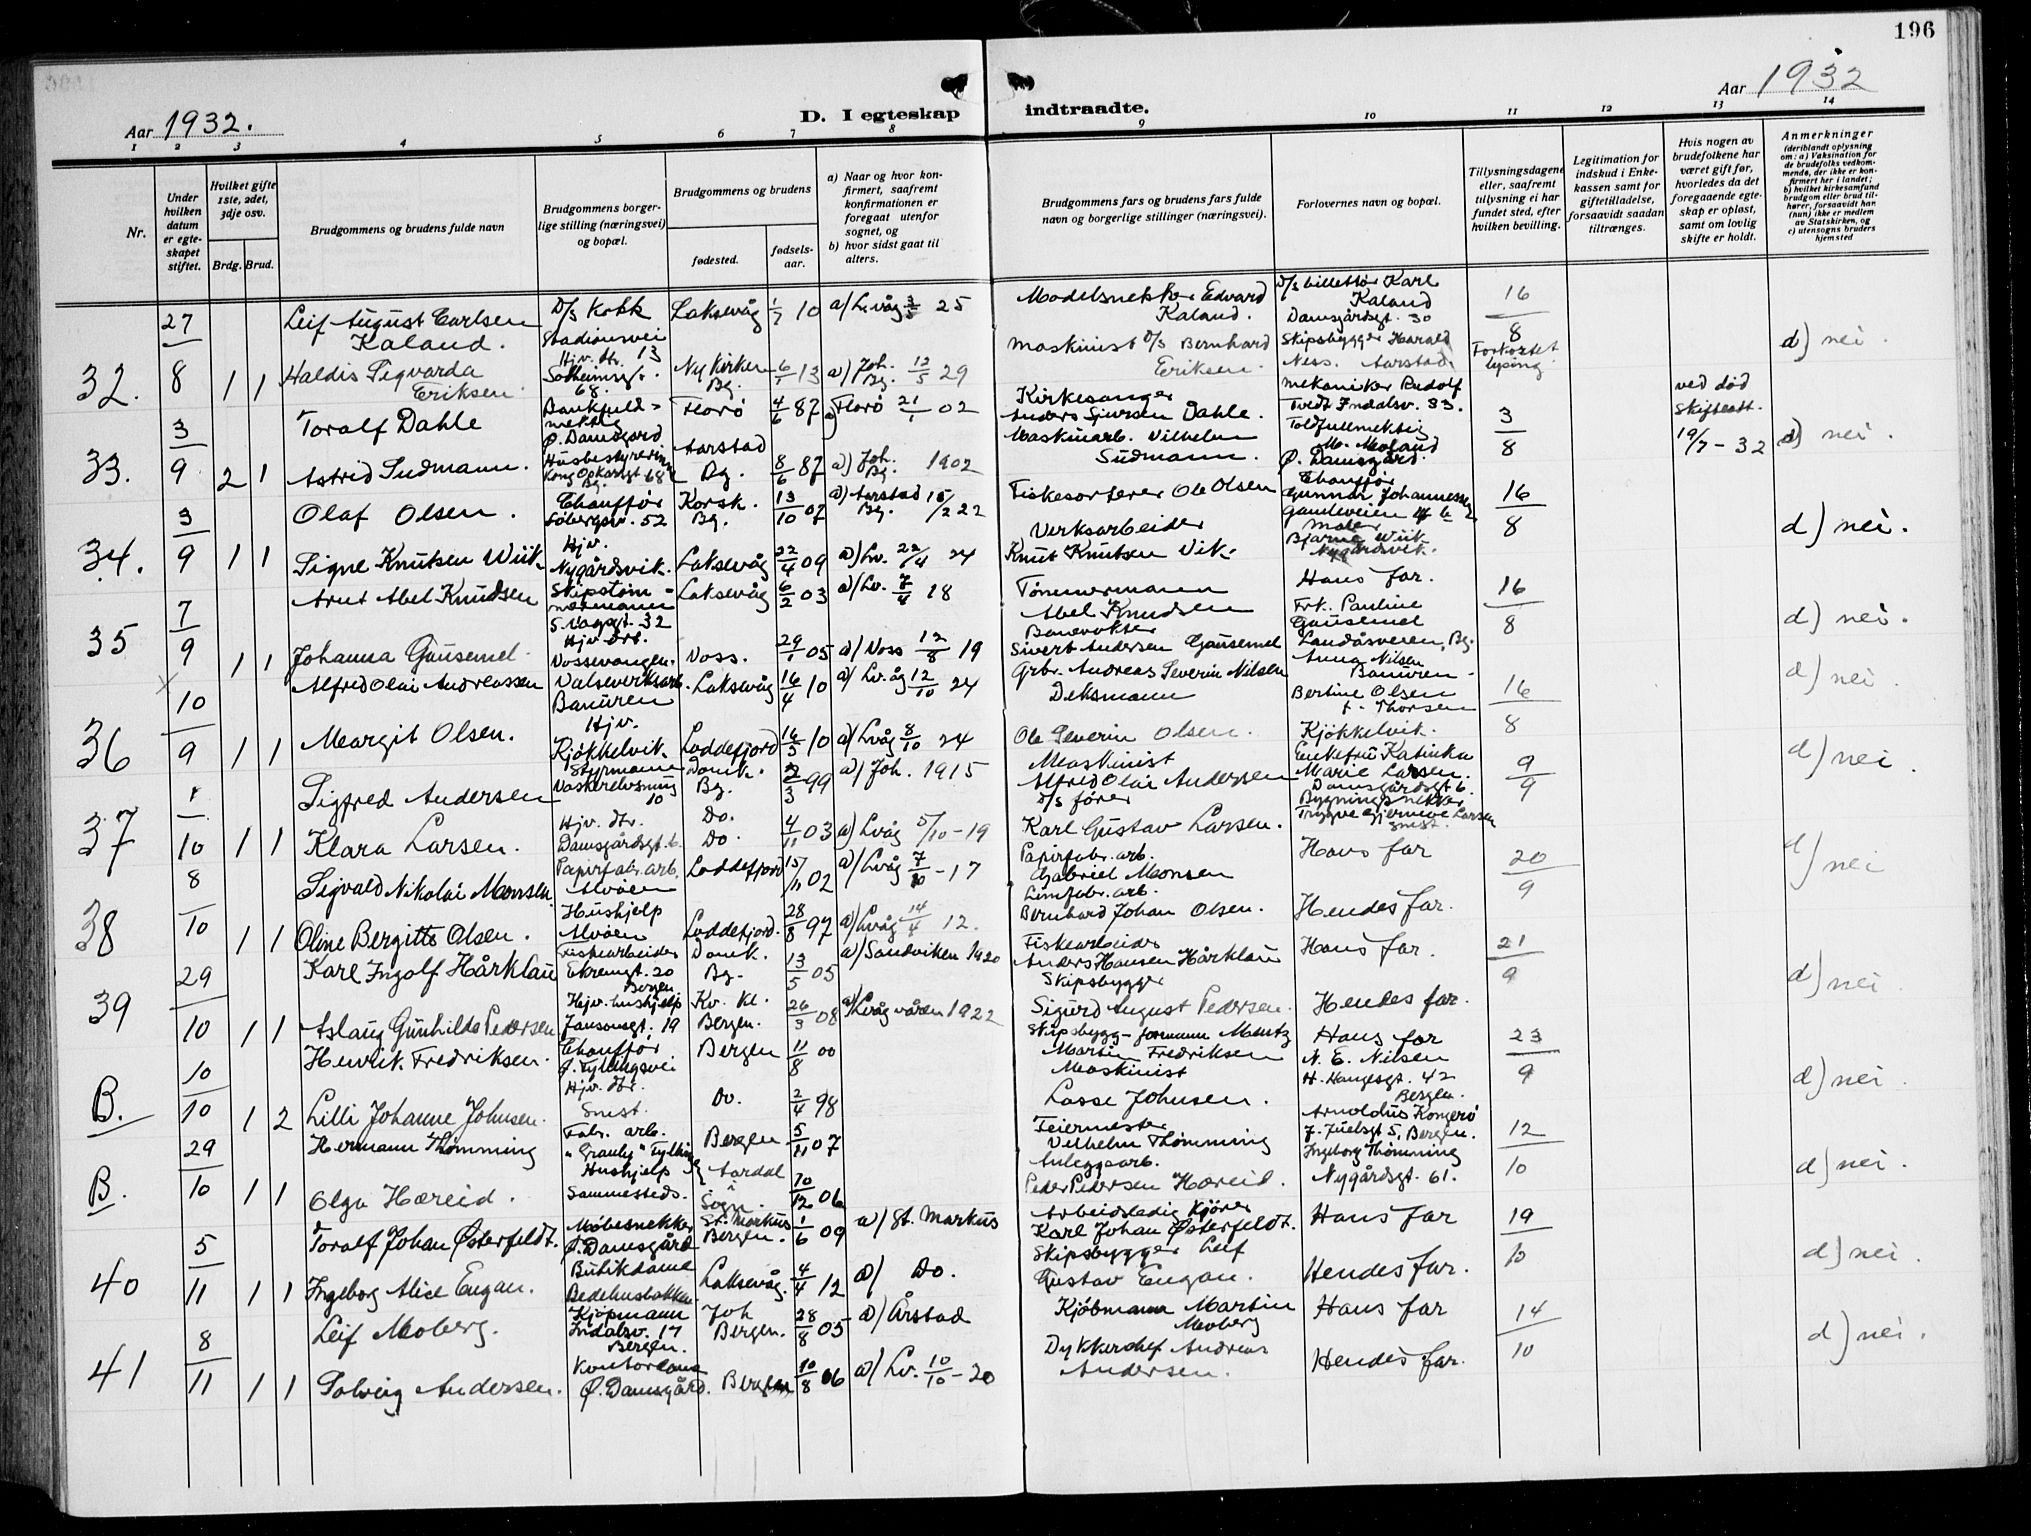 196
Aar 1932.
D. I egteskap indtraadte.
Aar 1932
1 2 3 4 5 6 7 8 9 10 11 12 13 14
Nr.
Under hvilken datum er egteskapet stiftet.
Hvilket gifte 1ste, 2det, 3dje osv.
Brdg. Brud.
Brudgommens og brudens fulde navn
Brudgommens borgerlige stilling (næringsvei) og bopæl.
Brudgommens og brudens
fødested.
fødselsaar.
a) Naar og hvor konfirmert, saafremt konfirmationen er foregaat utenfor sognet, og
b) hvor sidst gaat til alters.
Brudgommens fars og brudens fars fulde navn og borgerlige stillinger (næringsvei).
Forlovernes navn og bopæl.
Tillysningsdagene eller, saafremt tillysning ei har fundet sted, efter hvilken bevilling.
Legitimation for indskud i Enkekassen samt for giftetilladelse, forsaavidt saadan tiltrænges.
Hvis nogen av brudefolkene har været gift før, hvorledes da det foregaaende egteskap er opløst, samt om lovlig skifte er holdt.
Anmerkninger (deriblandt oplysning om: a) Vaksination for de brudefolks vedkommende, der ikke er konfirmert her i landet; b) hvilket kirkesamfund brudgom eller brud tilhører, forsaavidt han (hun) ikke er medlem av Statskirken, og c) utensogns bruders hjemsted
32. 27/8 1 1
Leif August Carlsen Kaland. D/s Kokk Stadionsvei 13 Laksevåg 1/7 10 a) Lvåg 3/5 25 Modelsnekker Edvard Kaland. D/s billettør Karl Kaland Damsgårdsgt. 30 16/8 Forkortet lysing d) nei.
Haldis Sigvarda Eriksen. Hjv. dtr. Solheimsgt. 68. Nykirken Bg. 6/1 13 a) Joh. Bg. 12/5 29 Maskinist D/s Bernhard Eriksen. Skipsbygger Harald Ness. Aarstad
33. 3/9 2 1
Toralf Dahle Bankfuldmektig Ø. Damsgård Florø 4/6 87 a) Florø 21/1 02 Kirkesanger Anders Sjursen Dahle. Mekaniker Rudolf Tvedt Indalsv. 33. 3/8 ved død Skifteatt. 19/7-32 d) nei.
Astrid Sudmann. Husbestyrerinne Kong Oskarsgt 68 Bg. Aarstad Bg. 8/6 87 a) Joh. Bg. 1902 Maskinarb. Vilhelm Sudmann. Toldfullmektig M. Moland Ø. Damsgård.
34. 3/9 1 1
Olaf Olsen. Chauffør Løbergsv. 52 Korsk. Bg. 13/10 07 a) Aarstad Bg. 15/2 22 Fiskesorterer Ole Olsen Chauffør Gunnar Johannesen 16/8 d) nei.
Signe Knutsen Wiik Hjv. Nygårdsvik. Laksevåg 22/4 09 a) Lv. 22/4 24 Verksarbeider Knut Knutsen Vik. Maler Bjarne Wiik Nygårdsvik.
35 7/9 1 1
Arnt Abel Knudsen Skipstømmermann S. Vågsgt. 32 Laksevåg 6/2 03 a) Lv. 7/4 18 Tømmermann Abel Knudsen Hans far. 16/8 d) nei.
Johanna Gausemel. Hjv. dtr. Vossevangen. Voss. 29/1 05 a) Voss 12/8 19 Banevokter Sivert Andersen Gausemel Frk. Pauline Gausemel Landåsveien, Bg.
36 10/9 1 1
Alfred Olai Andreassen Valseverksarb. Banuren Laksevåg 16/4 10 a) Lv.åg 12/10 24 Grbr. Andreas Severin Nilsen Deksmann Anna Nilsen Banuren 16/8 d) nei.
Margit Olsen. Hjv. Kjøkkelvik. Loddefjord 16/3 10 a) Lvåg 8/10 24 Ole Severin Olsen. Bertine Olsen f. Thorsen Kjøkkelvik.
37 1/10 1 1
Sigfred Andersen Styrmann Vaskerelvsmug 10 Domk. Bg. 2/3 99 a) Joh. 1915 Maskinist Alfred Olai Andersen Enkefru Katinka Marie Larsen. Damsgårdsgt 6. 9/9 d) nei.
Klara Larsen. Hjv. dtr. Damsgårdsgt. 6. Do. Do. 4/11 03 a) Lvåg 5/10-19 D/s fører Karl Gustav Larsen. Bygningssnekker
38 8/10 1 1
Sigvald Nikolai Monsen. Papirfabr. arb. Alvøen Loddefjord 15/11 02 a) Lvåg 7/10-17 Papirfabr. arb. Gabriel Monsen Hans far 20/9 d) nei
Oline Bergitte Olsen. Hushjelp Alvøen Loddefjord. 28/8 97 a) Lvåg 14/4 12. Limfabr. arb. Bernhard Johan Olsen. Hendes far.
39 29/10 1 1
Karl Ingolf Hårklau Fiskearbeider Ekrengt. 20 Bergen Domk. Bg. 13/5 05 a) Sandviken 1920 Fiskearbeider Anders Hansen Hårklau Hans far. 21/9 d) nei.
Aslaug Gunhilds Pedersen Hjv. hushjelp Jansonsgt. 19 Kv. kl. Bergen. 26/3 08 a) Lvåg våren 1922 Skipsbygger Sigurd August Pedersen. Hendes far.
B. 10/10 1 2
Henrik Fredriksen. Chauffør Ø. Fyllingsvei Bergen 11/8 00 Skipsbygg-formann Mentz Martin Fredriksen Hans far 23/9 d) nei.
Lilli Johanne Johnsen. Hjv. dtr. Do. 2/4 98 Maskinist Lasse Johnsen. N. E. Nilsen H. Haugesgt. 42 Bergen.
B. 29/10 1 1
Hermann Thømming Fabr. arb. Bergen 5/11 07 Feiermester Vilhelm Thømming Arnoldus Kongerø J. Juelsgt 5, Bergen. 12/10 d) nei.
Olga Hæreid. Hushjelp Sammesteds. Aardal i Sogn. 70/12 06 Anleggsarb. Peder Pedersen Hæreid. Ingeborg Thømming Nygårdsgt. 61.
40 5/11 1 1
Toralf Johan Østerfeldt. Møbelsnekker Ø. Damsgård St. Markus Bergen. 1/6 09 a) St. Markus Arbeidsledig kjører Karl Johan Østerfeldt. Hans far 19/10 d) nei.
Ingeborg Alice Engan. Butikdame Bedehusbakken Laksevåg. 4/4 12 a) Do. Skipsbygger Leif Gustav Engan. Hendes far.
41 8/11 1 1
Leif Moberg. Kjøpmann Indalsv. 17 Bergen. Joh Bergen. 28/8 05 a) Årstad Kjøbmann Martin Moberg Hans far 14/10 d) nei.
Solveig Andersen. Kontordame Ø. Damsgård. Bergen 10/8 06 a) Lv. 10/10-20 Dykkerchef Andreas Andersen. Hendes far.